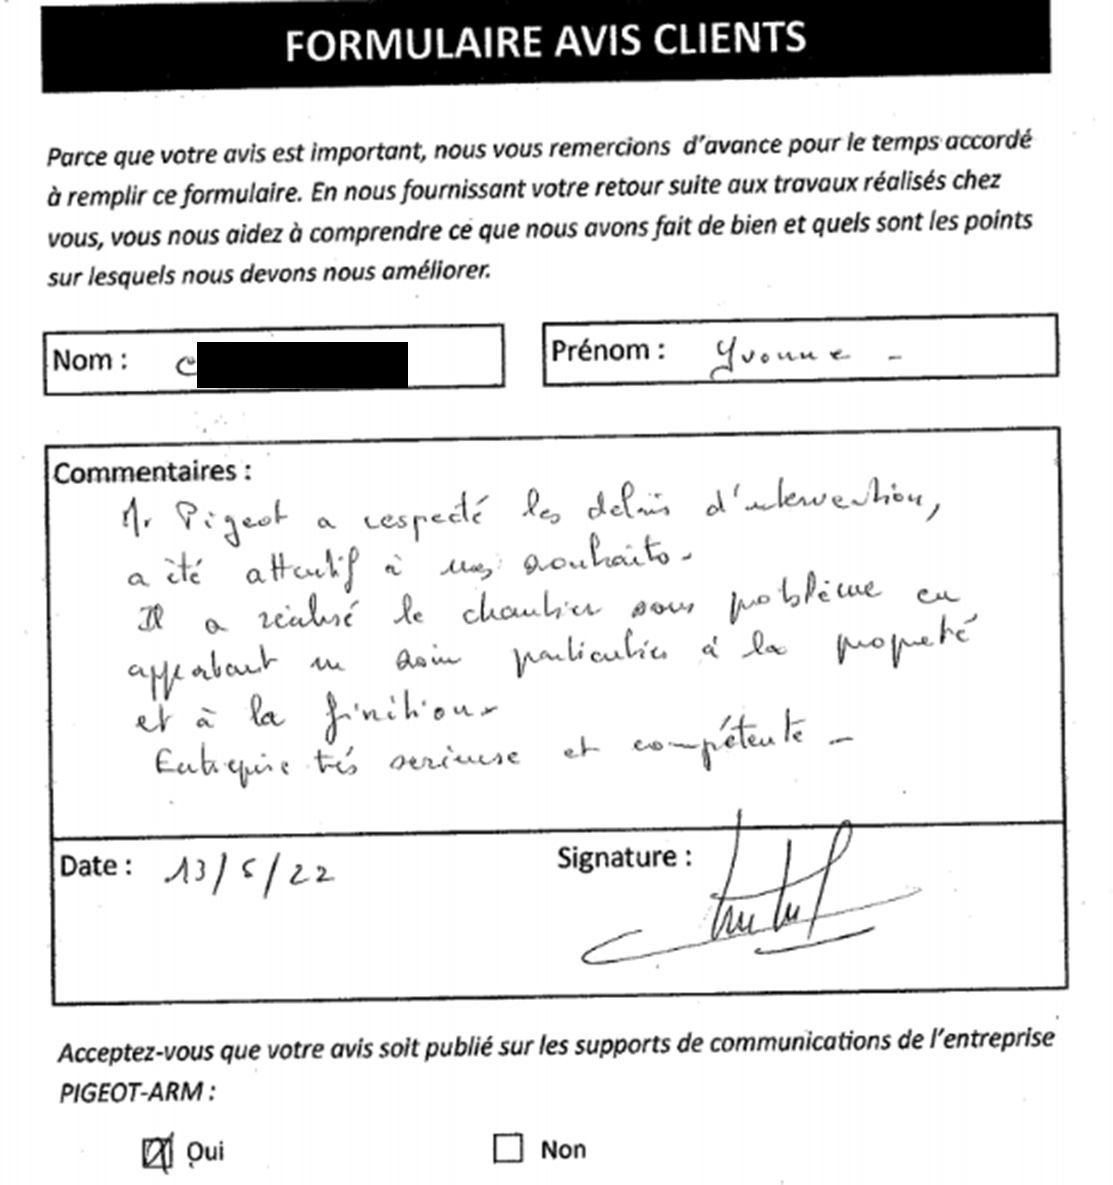 FORMULAIRE AVIS CLIENTS
Parce que votre avis est important, nous vous remercions d'avance pour le temps accordé
à remplir ce formulaire. En nous fournissant votre retour suite aux travaux réalisés chez
vous, vous nous aidez à comprendre ce que nous avons fait de bien et quels sont les points
sur lesquels nous devons nous améliorer.
Nom : C
Prénom : Yvonne -
Commentaires :
Mr Pigeot a respecté les délais d'intervention,
a été attentif à nos souhaits.
Il a réalisé le chantier sans problème en
apportant un soin particulier à la propreté
et à la finition.
Entreprise très sérieuse et compétente -
Date : 13/5/22
Signature :
Acceptez-vous que votre avis soit publié sur les supports de communications de l'entreprise
PIGEOT-ARM :
Oui
Non